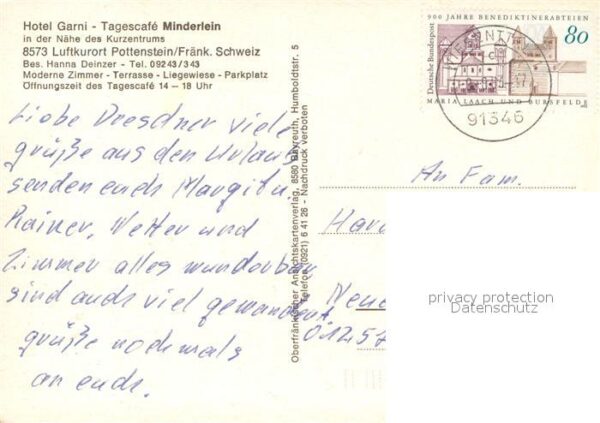 Hotel Garni - Tagescafé Minderlein
in der Nähe des Kurzentrums
8573 Luftkurort Pottenstein/Fränk. Schweiz
Bes. Hanna Deinzer - Tel. 09243/343
Moderne Zimmer - Terrasse - Liegewiese - Parkplatz
Öffnungszeit des Tagescafé 14 – 18 Uhr
Liebe Dresdner viele
grüße aus den Urlaub
senden euch Margit u.
Rainer, Wetter und
Zimmer alles wunderbar
sind auch viel gewandert
grüße nochmals
an euch.
Oberfränkischer Ansichtskartenverlag, 8580 Bayreuth, Humboldtstr. 5
Telefon (0921) 6 41 26 - Nachdruck verboten
900 JAHRE BENEDIKTINERABTEIEN
80
Deutsche Bundespost
MARIA LAACH UND BURSFELDE
91346
An Fam.
privacy protection
Datenschutz